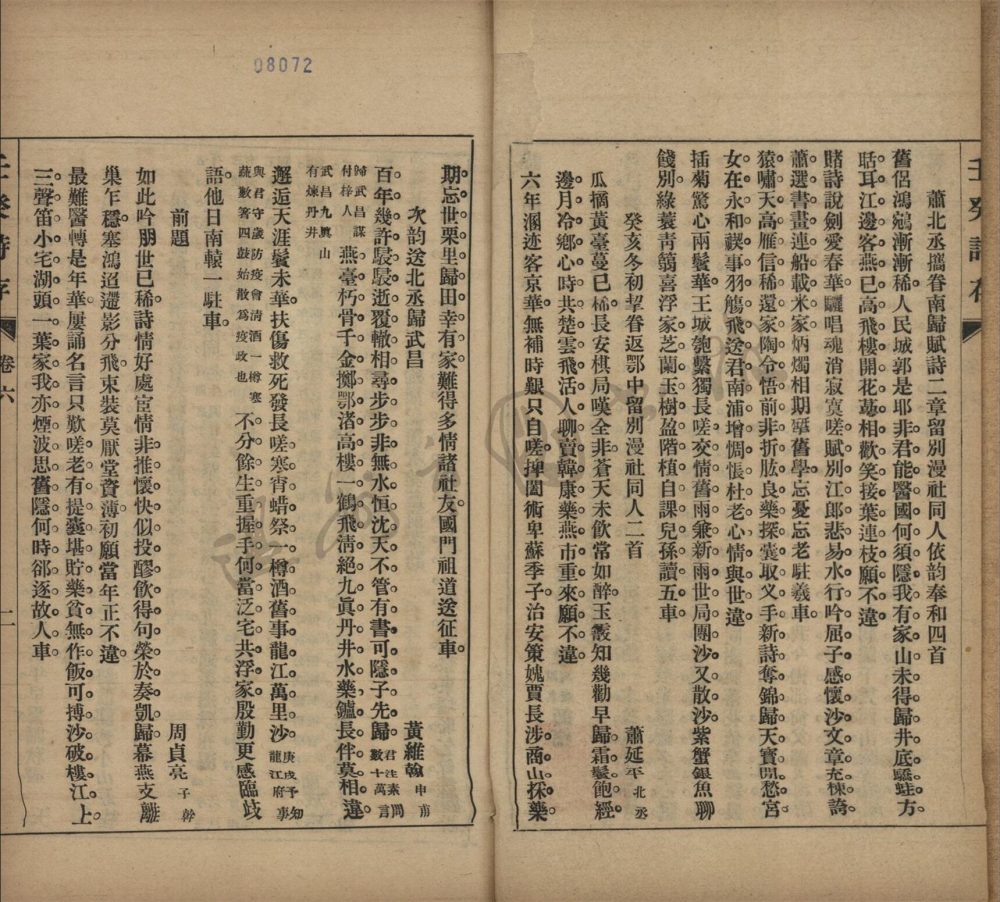 蕭北丞攜眷南歸賦詩二章留別漫社同人依韵奉和四首
舊侶鴻鵷漸漸稀人民城郭是耶非君能醫國何須隱我有家山未得歸井底驕蛙方
聒耳江邊客燕已高飛樓開花萼相歡笑接葉連枝願不違
賭詩說劍愛春華驪唱魂消寂寞嗟賦別江郎悲易水行吟屈子感懷沙文章充棟誇
蕭選書畫連船載米家炳燭相期舉舊學忘憂忘老駐羲車
猿嘯天高雁信稀還家陶令悟前非折肱良藥探囊取叉手新詩奪錦歸天寶閒愁宮
女在永和禊事羽觴飛送君南浦增惆悵杜老心情與世違
插菊驚心兩鬢華王城匏繫獨長嗟交情舊雨兼新雨世局團沙又散沙紫蟹銀魚聊
餞別綠蓑靑篛喜浮家芝蘭玉樹盈階植自課兒孫讀五車
癸亥冬初挈眷返鄂中留別漫社同人二首
蕭延平北丞
瓜摘黃臺蔓已稀長安棋局嘆全非蒼天未飮常如醉玉鬷知幾勸早歸霜鬢飽經
邊月冷鄉心時共楚雲飛活人聊賣韓康藥燕市重來願不違
六年溷迹客京華無補時艱只自嗟捭闔術卑蘇季子治安策媿賈長沙商山採藥
期忘世栗里歸田幸有家難得多情諸社友國門祖道送征車
次韵送北丞歸武昌
黃維翰申甫
百年幾許駸駸逝覆轍相尋步步非無水恒沈天不管有書可隱子先歸君注素問
數十萬言
歸武昌謀
付梓人燕臺朽骨千金擲鄂渚高樓一鶴飛淸絕九眞丹井水藥鑪長伴莫相違
武昌九眞山
有煉丹井
邂逅天涯鬢未華扶傷救死發長嗟寒宵蜡祭一樽酒舊事龍江萬里沙庚戌予知
龍江府事
與君守歲防疫會淸酒一樽寒
蔬數箸四鼓始散爲疫政也不分餘生重握手何當泛宅共浮家殷勤更感臨歧
語他日南轅一駐車
前題
周貞亮子幹
如此吟朋世已稀詩情好處宦情非推懷快似投醪飮得句榮於奏凱歸幕燕支離
巢乍穩塞鴻迢遞影分飛束裝莫厭堂資薄初願當年正不違
最難醫轉是年華屢誦名言只歎嗟老有提囊堪貯藥貧無作飯可摶沙破樓江上
三聲笛小宅湖頭一葉家我亦煙波思舊隱何時郤逐故人車
卷六
08072